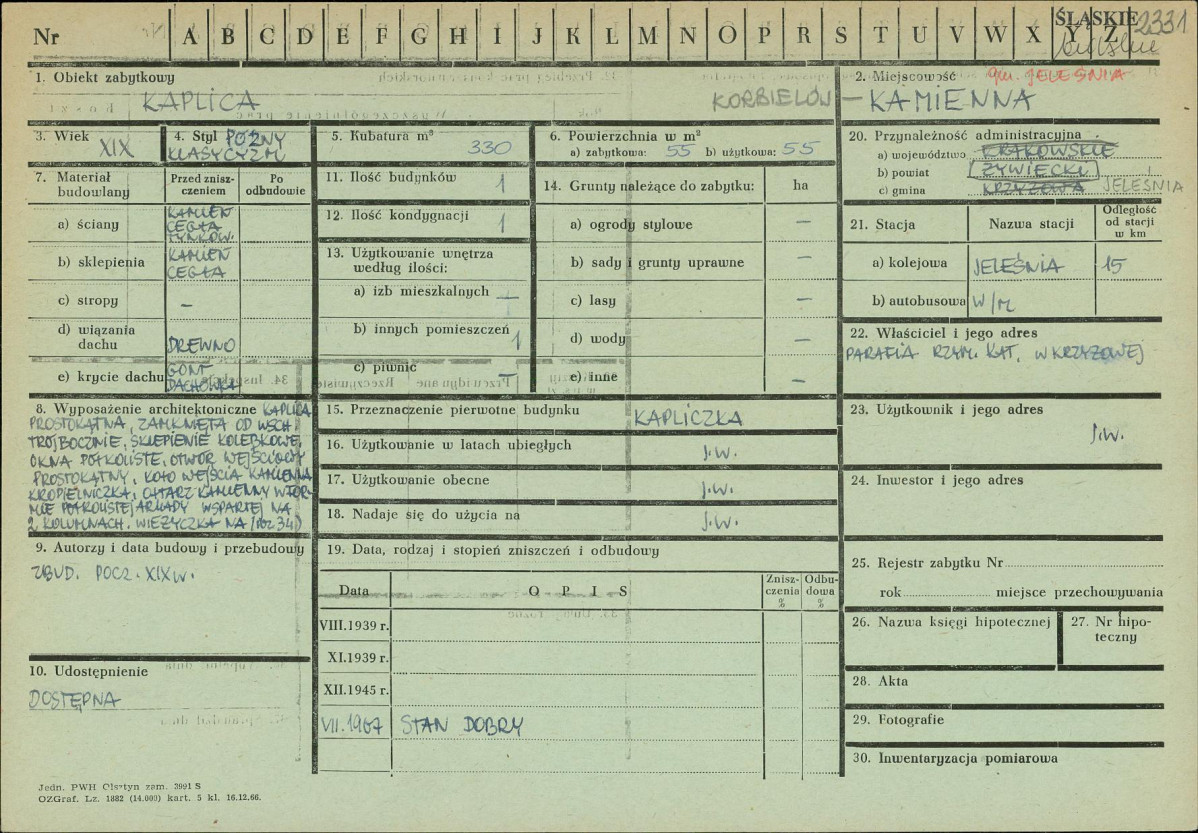 Nr A B C D E F G H I J K L M N O P R S T U V W X Y Z
ŚLĄSKIE 2331
bielskie
1. Obiekt zabytkowy
KAPLICA
KORBIELÓW
2. Miejscowość gm. JELEŚNIA
- KAMIENNA
3. Wiek
XIX
4. Styl PÓŹNY
KLASYCYZM
5. Kubatura m³
330
6. Powierzchnia w m²
a) zabytkowa: 55 b) użytkowa: 55
20. Przynależność administracyjna
a) województwo KRAKOWSKIE
b) powiat ŻYWIECKI
c) gmina KRZYŻOWA JELEŚNIA
7. Materiał budowlany
Przed zniszczeniem
Po odbudowie
a) ściany KAMIEŃ
CEGŁA
TYNKOW.
b) sklepienia KAMIEŃ
CEGŁA
c) stropy –
d) wiązania
dachu DREWNO
e) krycie dachu GONT
DACHÓWKA
11. Ilość budynków 1
12. Ilość kondygnacji 1
13. Użytkowanie wnętrza
według ilości:
a) izb mieszkalnych –
b) innych pomieszczeń 1
c) piwnic –
14. Grunty należące do zabytku: ha
a) ogrody stylowe –
b) sady i grunty uprawne –
c) lasy –
d) wody –
e) inne –
21. Stacja Nazwa stacji Odległość
od stacji
w km
a) kolejowa JELEŚNIA 15
b) autobusowa W/M
22. Właściciel i jego adres
PARAFIA RZYM. KAT. W KRZYŻOWEJ
8. Wyposażenie architektoniczne KAPLICA
PROSTOKĄTNA, ZAMKNIĘTA OD WSCH.
TRÓJBOCZNIE, SKLEPIENIE KOLEBKOWE,
OKNA PÓŁKOLISTE, OTWÓR WEJŚCIOWY
PROSTOKĄTNY, KOŁO WEJŚCIA KAMIENNA
KROPIELNICZKA, OŁTARZ KAMIENNY W FOR-
MIE PÓŁKOLISTEJ ARKADY WSPARTEJ NA
2 KOLUMNACH. WIEŻYCZKA NA (poz 34)
15. Przeznaczenie pierwotne budynku
KAPLICZKA
16. Użytkowanie w latach ubiegłych
j.w.
17. Użytkowanie obecne
j.w.
18. Nadaje się do użycia na
j.w.
23. Użytkownik i jego adres
j.w.
24. Inwestor i jego adres
9. Autorzy i data budowy i przebudowy
ZBUD. POCZ. XIX w.
10. Udostępnienie
DOSTĘPNA
19. Data, rodzaj i stopień zniszczeń i odbudowy
Data OPIS Znisz-
czenia
% Odbu-
dowa
%
VIII.1939 r.
XI.1939 r.
XII.1945 r.
VII.1967 STAN DOBRY
25. Rejestr zabytku Nr
rok miejsce przechowywania
26. Nazwa księgi hipotecznej
27. Nr hipo-
teczny
28. Akta
29. Fotografie
30. Inwentaryzacja pomiarowa
Jedn. PWH Olsztyn zam. 3991 S
OZGraf. Lz. 1882 (14.000) kart. 5 kl. 16.12.66.